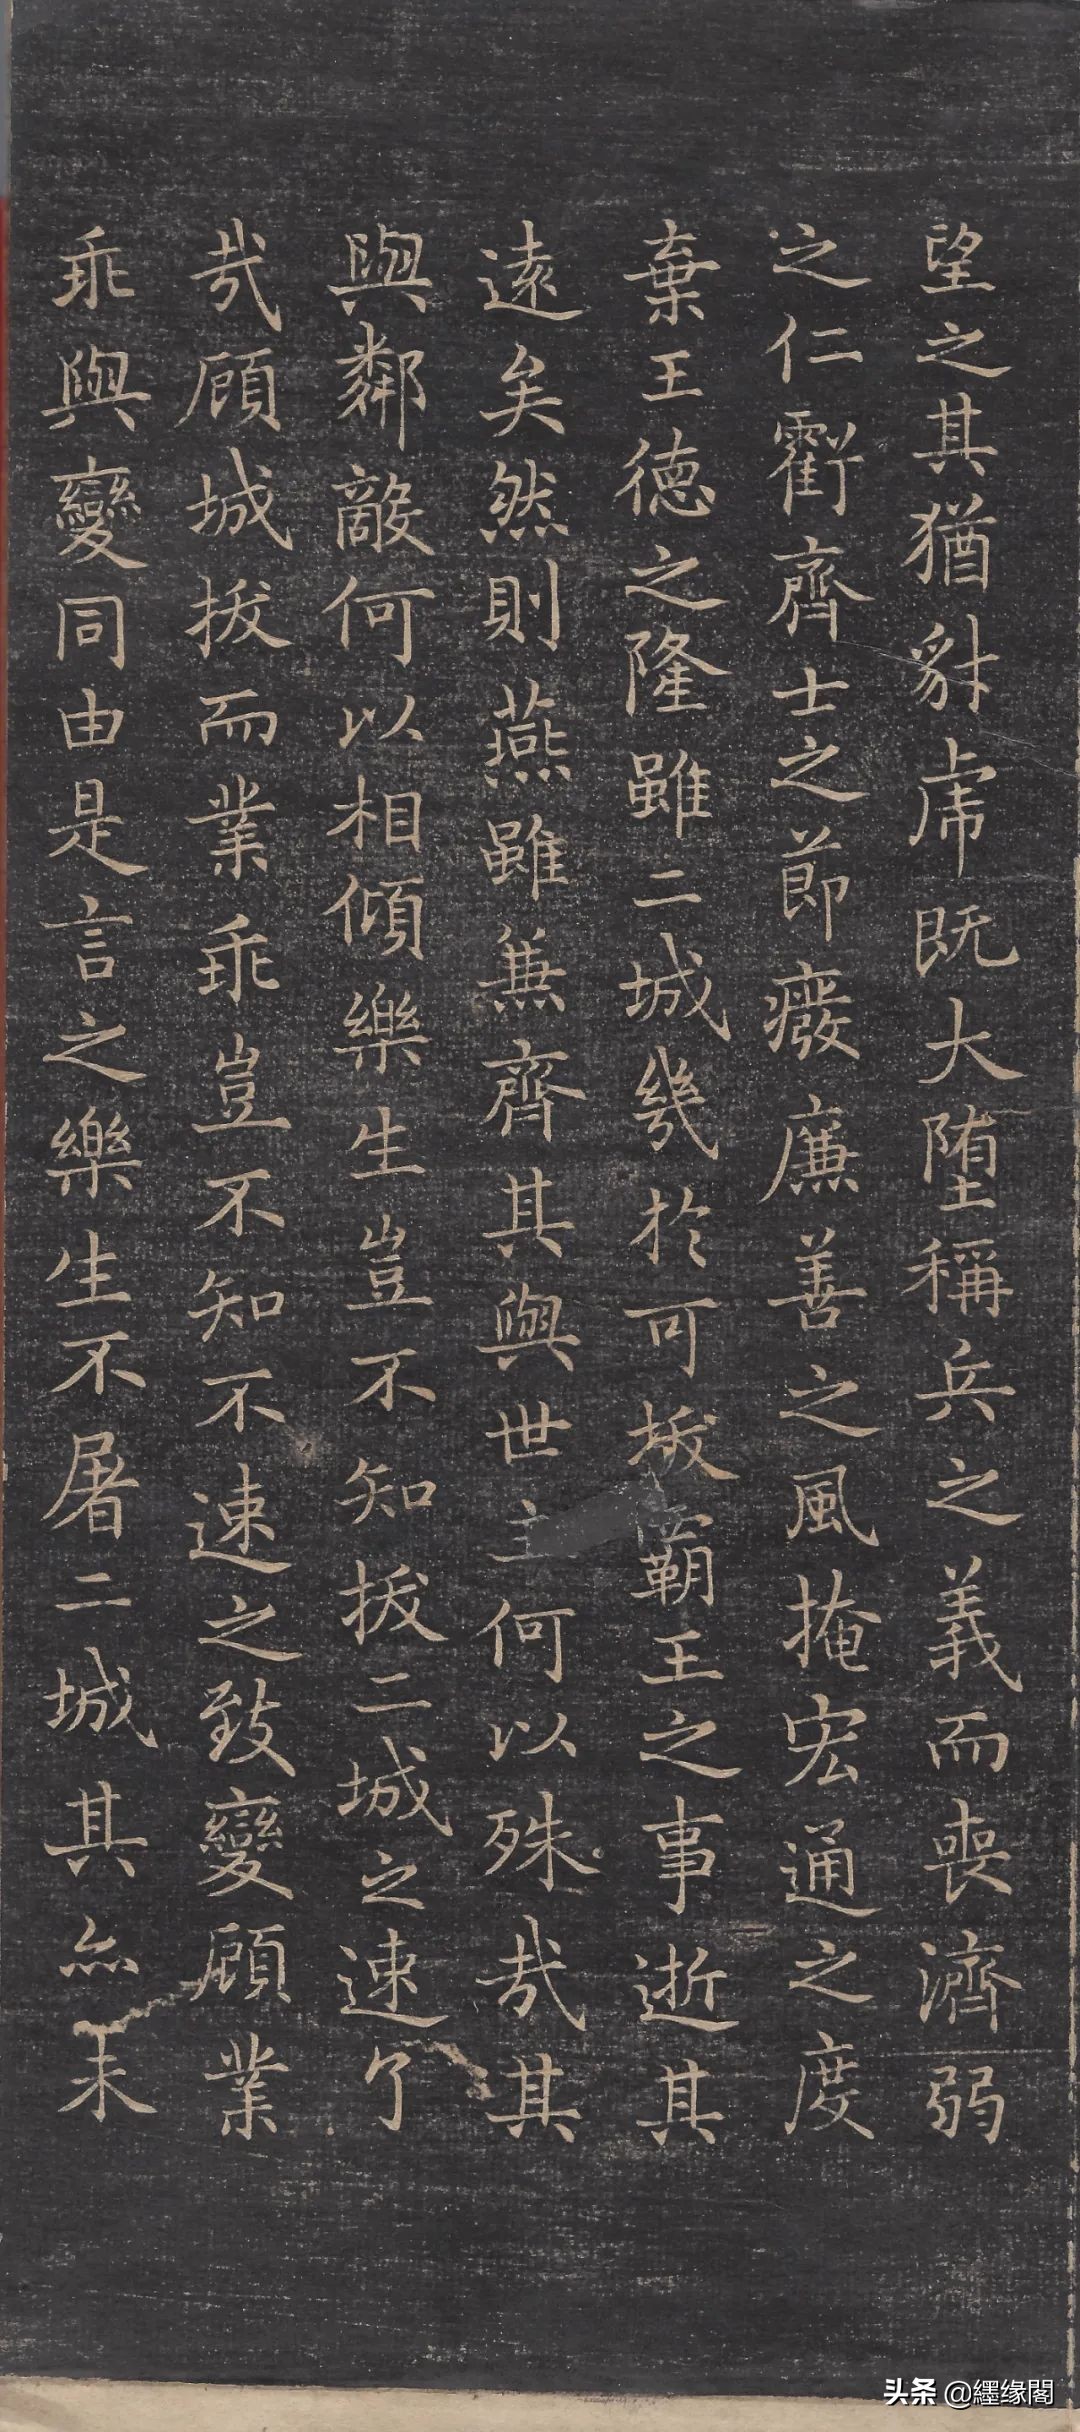 望之其猶豺虎既大堕稱兵之義而喪濟弱
之仁虧齊士之節癈廉善之風掩宏通之度
棄王德之隆雖二城幾於可拔霸王之事逝其
遠矣然則燕雖兼齊其與世主何以殊哉其
與鄰敵何以相傾樂生豈不知拔二城之速了
哉顧城拔而業乖豈不知不速之致變顧業
乖與變同由是言之樂生不屠二城其亦未
头条 @纆缘閣